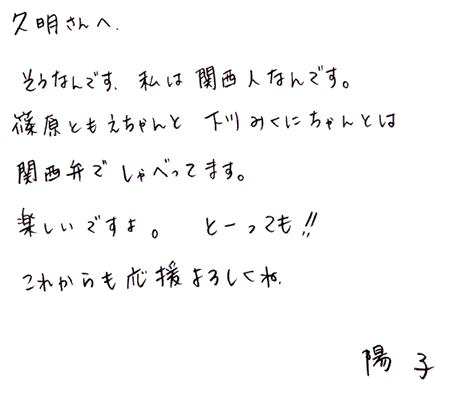 久明さんへ.
そうなんです. 私は関西人なんです。
篠原ともえちゃんと 下川みくにちゃんとは
関西弁でしゃべってます。
楽しいですよ。 とーっても!!
これからも応援よろしくね.
陽子